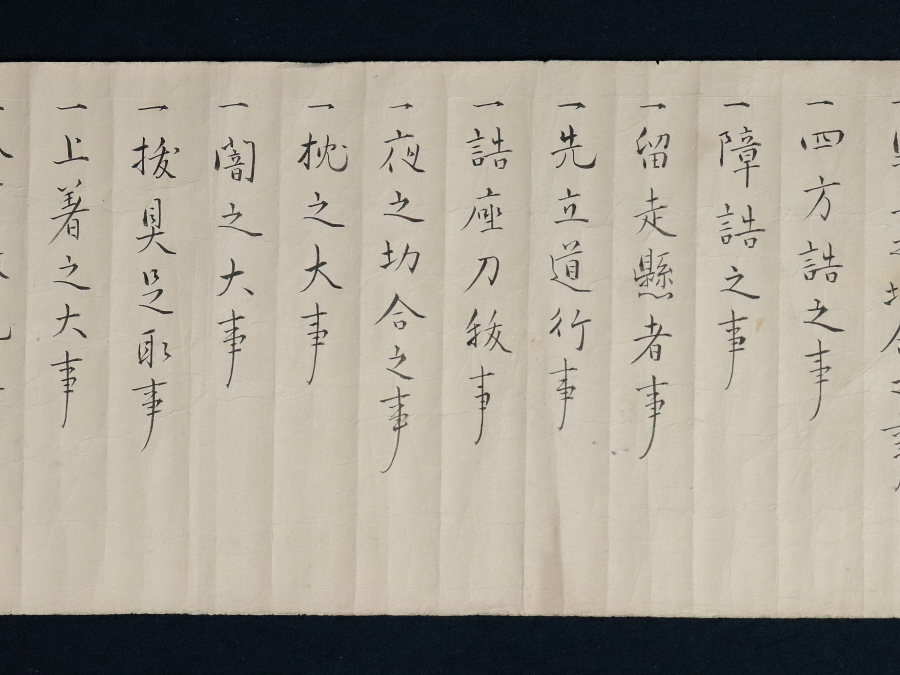 一四方誥之事
一障誥之事
一留走懸者事
一先立道行事
一誥座刀抜事
一夜之切合之事
一枕之大事
一闇之大事
一抜具足取事
一上着之大事